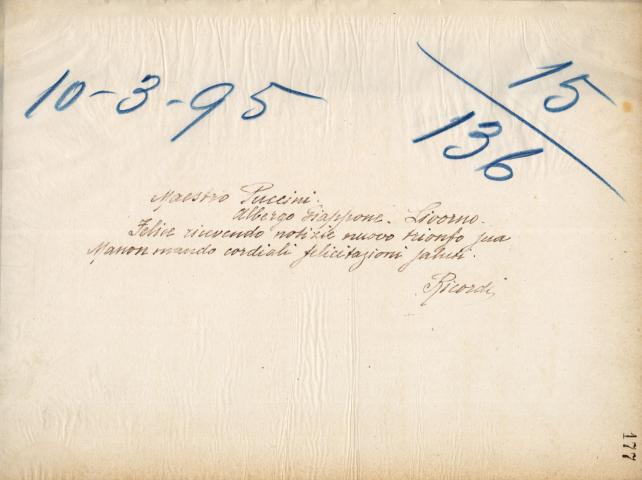 10-3-95
15/136
Maestro Puccini.
Albergo Giappone. Livorno.
Felice ricevendo notizie nuovo trionfo sua
Manon mando cordiali felicitazioni saluti.
Ricordi
177